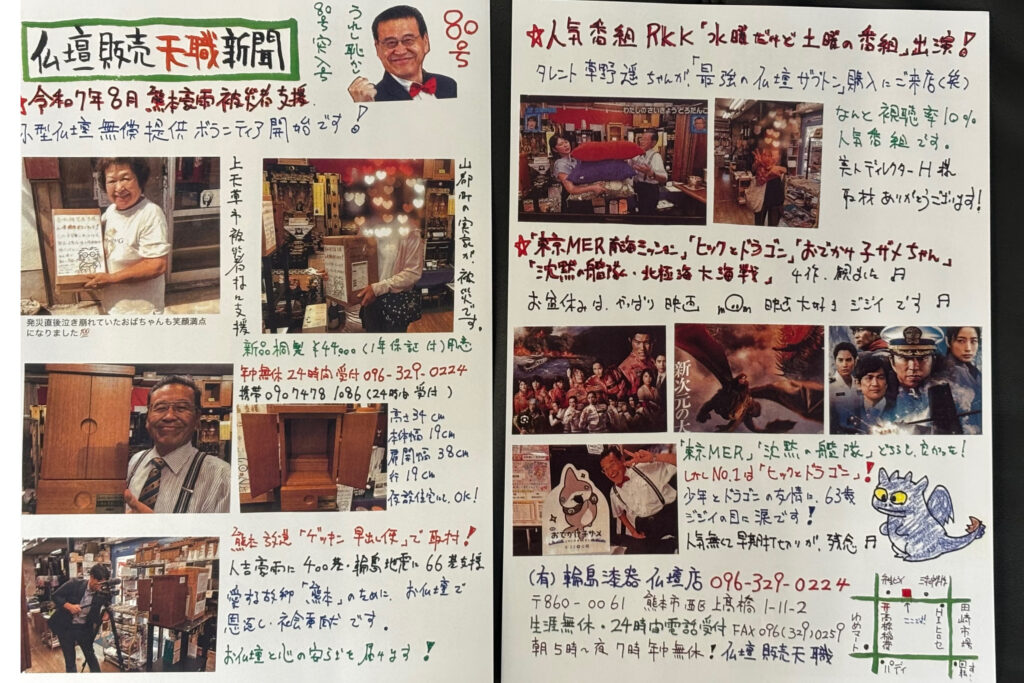 仏壇販売天職新聞
80号
うれし恥かし
80号突入号
☆令和7年8月 熊本豪雨被災者支援
小型仏壇無償提供ボランティア開始です!
上天草市被災者様に支援
山都町の実家が、被災です。
発災直後泣き崩れていたおばちゃんも笑顔満点
になりました💯
新品桐製 ¥44,900 (1年保証付)用意
年中無休24時間受付 096-329-0224
携帯 090 7478 1086 (24時間受付)
高さ34cm
本体幅19cm
扉開幅38cm
奥行19cm
仮設住宅にも、OK!
熊本放送「ゲツキン早出し便」で取材!
人吉豪雨に400基・輪島地震に66基支援
愛する故郷「熊本」のために、お仏壇で
恩返し・社会貢献です。
お仏壇と心の安らぎを届けます!
☆人気番組RKK「水曜だけど土曜の番組」出演!
タレント草野遥ちゃんが、「最強の仏壇ザブトン」購入にご来店(笑)
わたしのさいきょうとうだんこ
なんと視聴率10%
人気番組です。
美人ディレクターH様
取材ありがとうございます!
☆「東京MER 南海ミッション」「ヒックとドラゴン」「おでかけ子ザメちゃん」
「沈黙の艦隊・北極海大海戦」4作、観ました♬
お盆休みは、やっぱり映画 映画大好きジジイです♬
新次元の大
おでかけ子ザメ
「東京MER」「沈黙の艦隊」どちらも、良かった!
しかしNo.1は「ヒックとドラゴン」!
少年とドラゴンの友情に、63歳
ジジイの目に涙です!
人気無くて早期打ち切りが、残念♬
(有)輪島漆器仏壇店 096-329-0224
〒860-0061 熊本市西区上高橋1-11-2
生涯無休・24時間電話受付 FAX096(329)0259
朝5時〜夜7時 年中無休!仏壇販売天職
高橋稲荷
ここだ
田崎市場
パティ